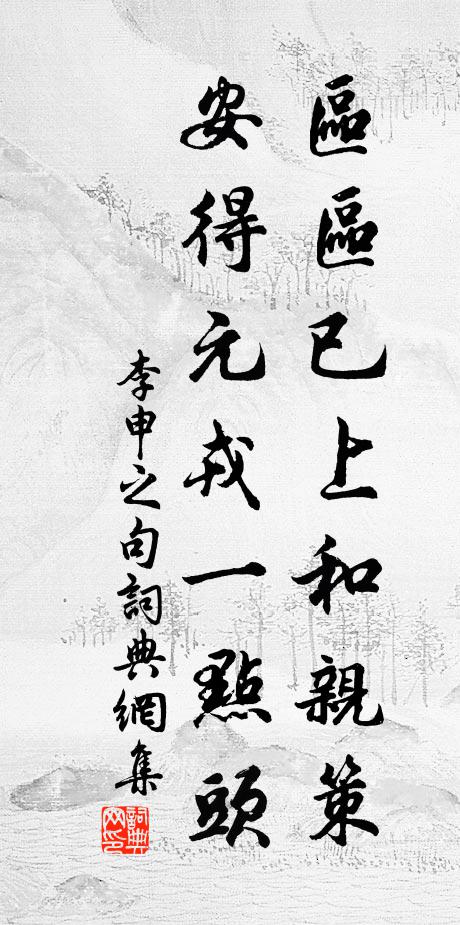 區區已上和親策
安得元戎一點頭
李申之句詞典網集
詞典网印